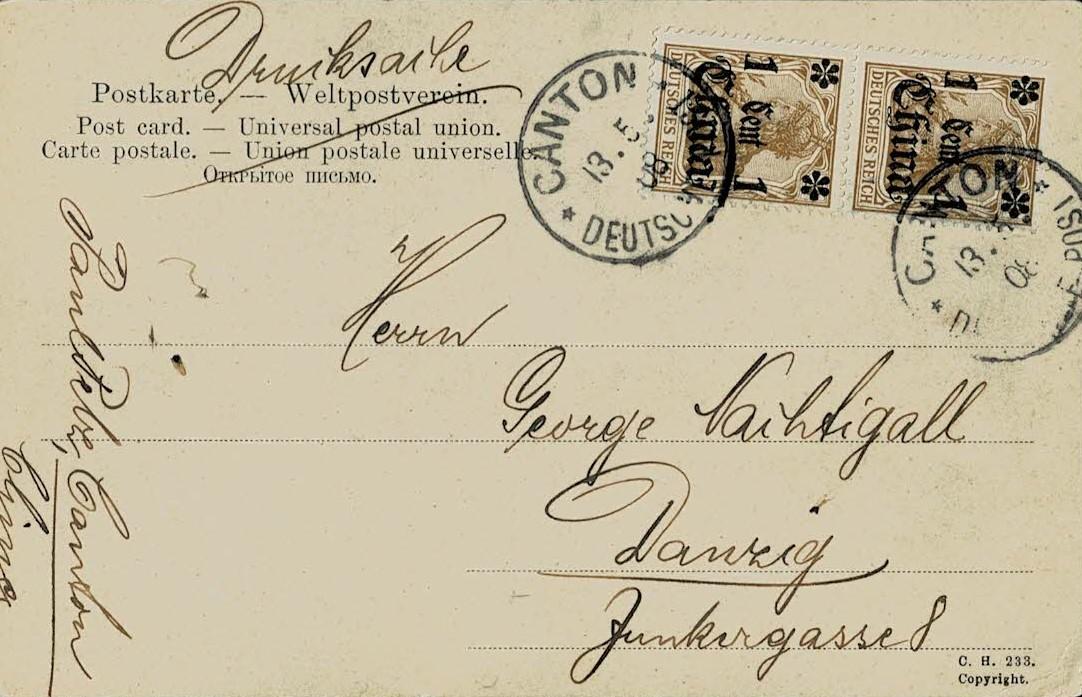 Drucksache
Postkarte. — Weltpostverein.
Post card. — Universal postal union.
Carte postale. — Union postale universelle.
Открытое письмо.
CANTON
13.
08
* DEUTSCH
DEUTSCHES REICH
1 Cent 1
China
DEUTSCHES REICH
1 Cent 1
China
CANTON
13.
08
Herrn
George Nachtigall
Danzig
Junkergasse 8
Canton
China
C. H. 233.
Copyright.